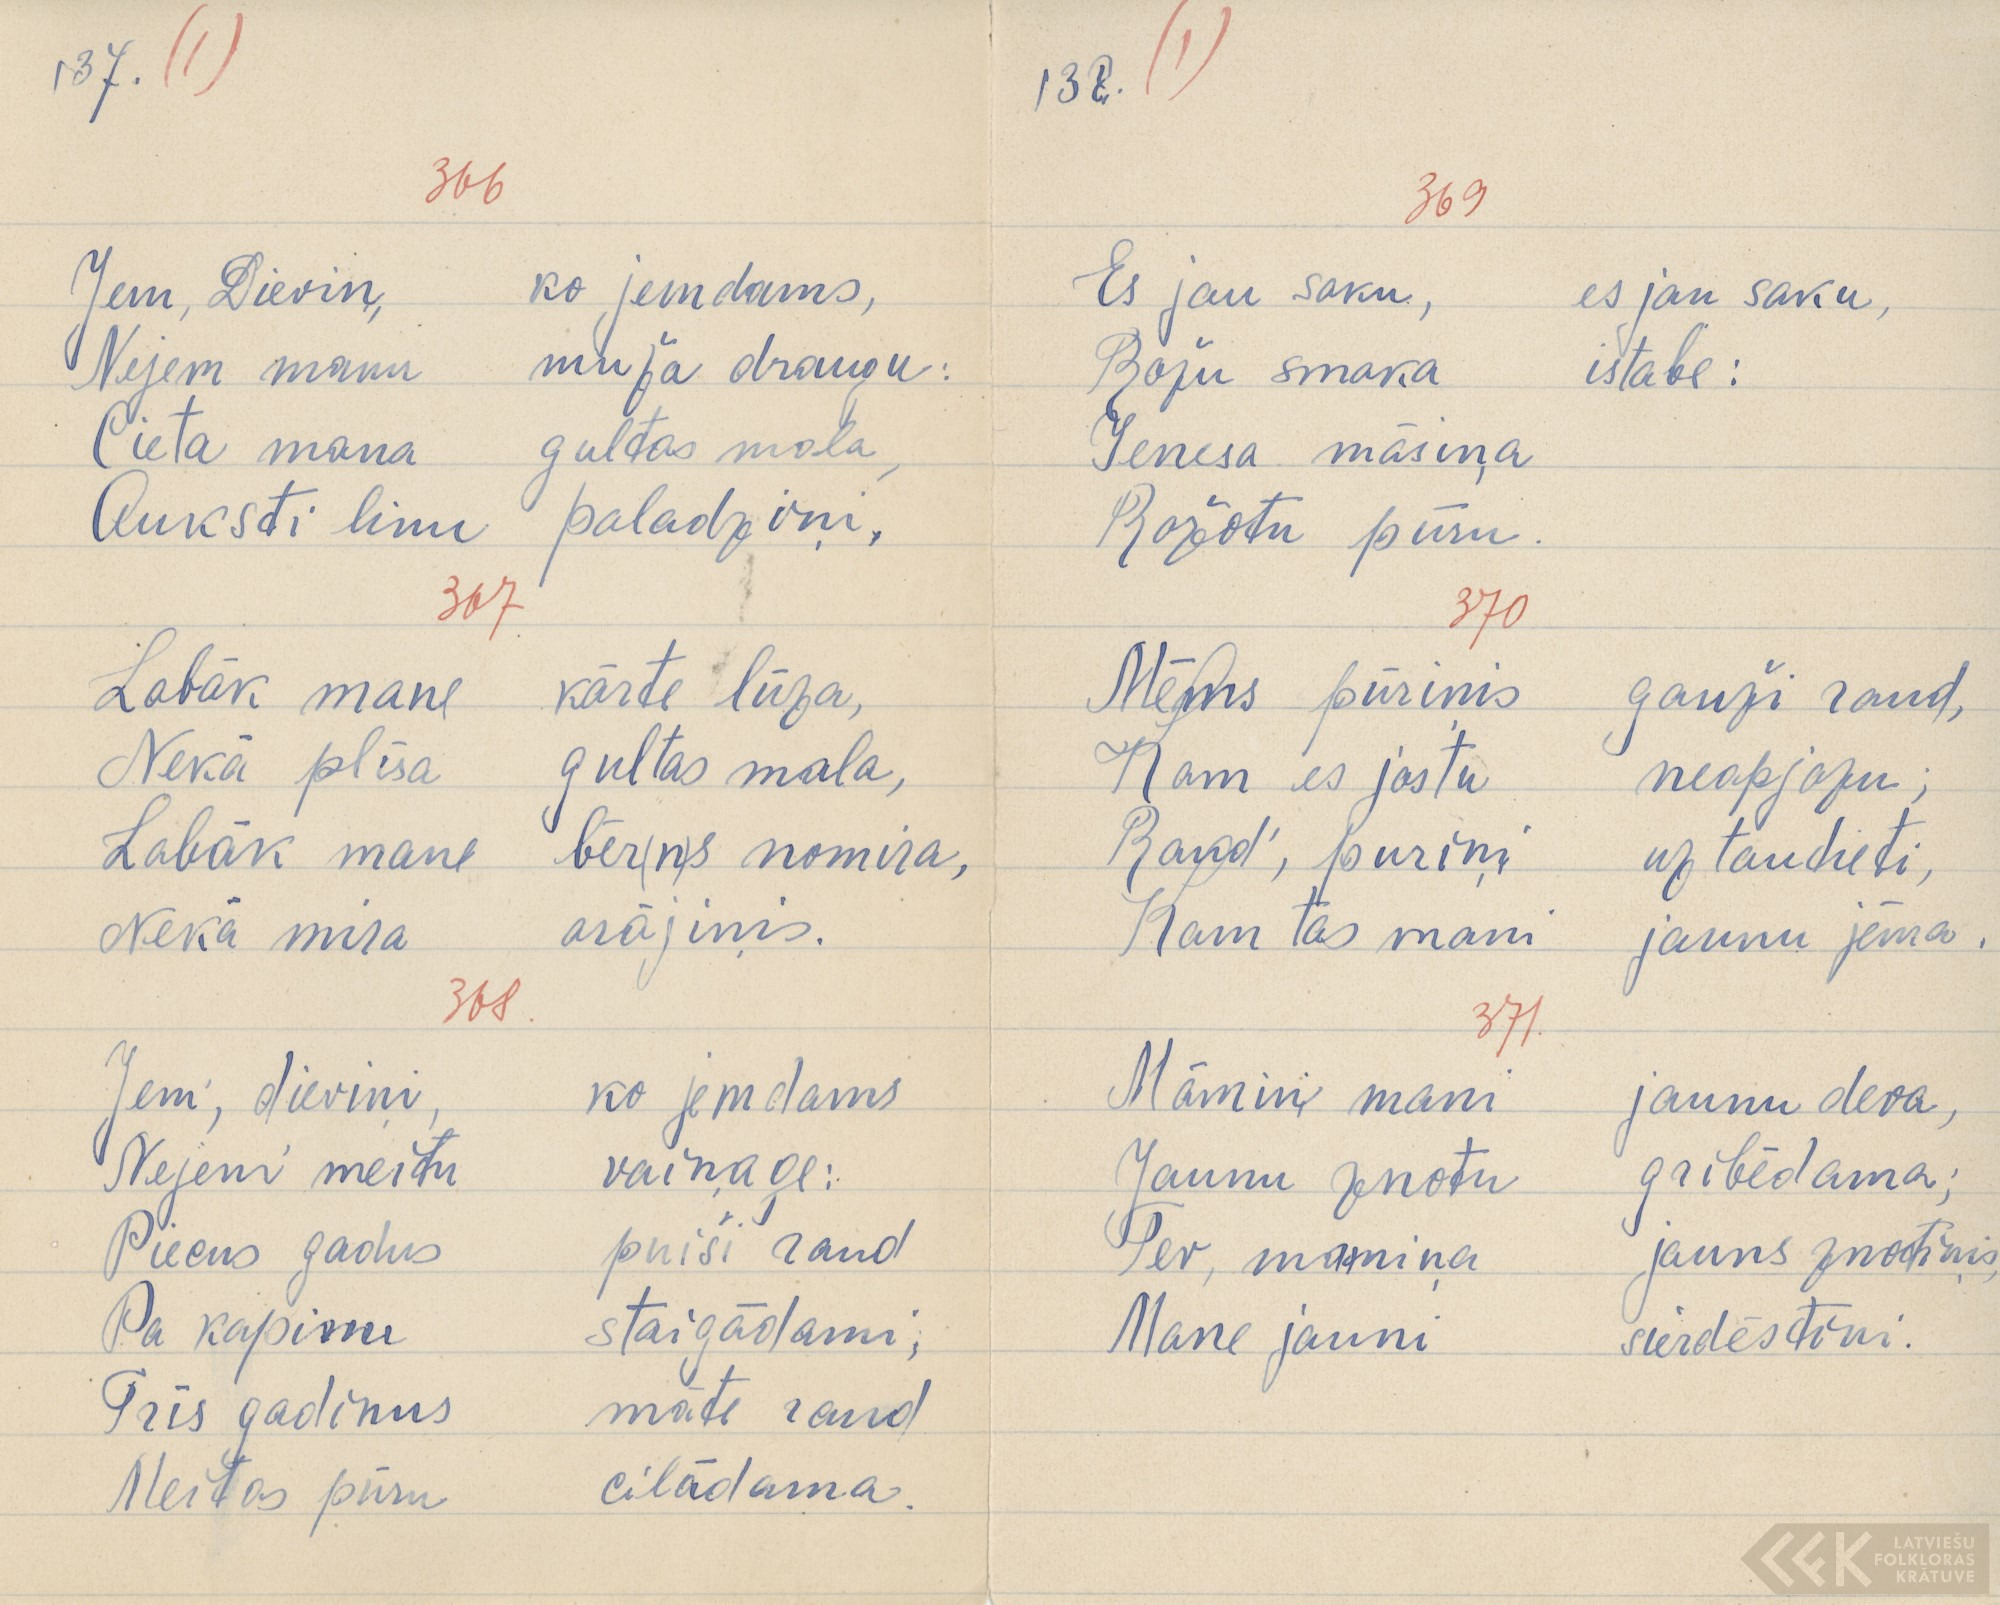 137. (1)
366
Jem, Dieviņ, ko jemdams,
Nejem manu muža draugu:
Cieta mana gultas mala,
Auksti linu paladziņi.
367
Labāk mane kārte lūza,
Nekā plīsa gultas mala,
Labāk mane bēr(n)s nomira,
Nekā mira arājiņis.
368.
Jem', dieviņi, ko jemdams
Nejem' meitu vaiņage:
Piecus gadus puiši raud
Pa kapinu staigādami;
Trīs gadinus māte raud
Meitas pūru cilādama.
138. (1)
369
Es jau saku, es jau saku,
Rožu smaka istabe:
Ienesa māsiņa
Rožotu pūru.
370
pūriņis gauži raud,
Kam es jostu neapjozu;
Raud', puriņi uz taudieti,
Kam tas mani jaunu jēma.
371.
Māmiņ mani jaunu deva,
Jaunu znotu gribēdama;
Tev, mamiņa jauns znotiņis,
Mane jauni sierdēstini.
LATVIEŠU
FOLKLORAS
KRĀTUVE